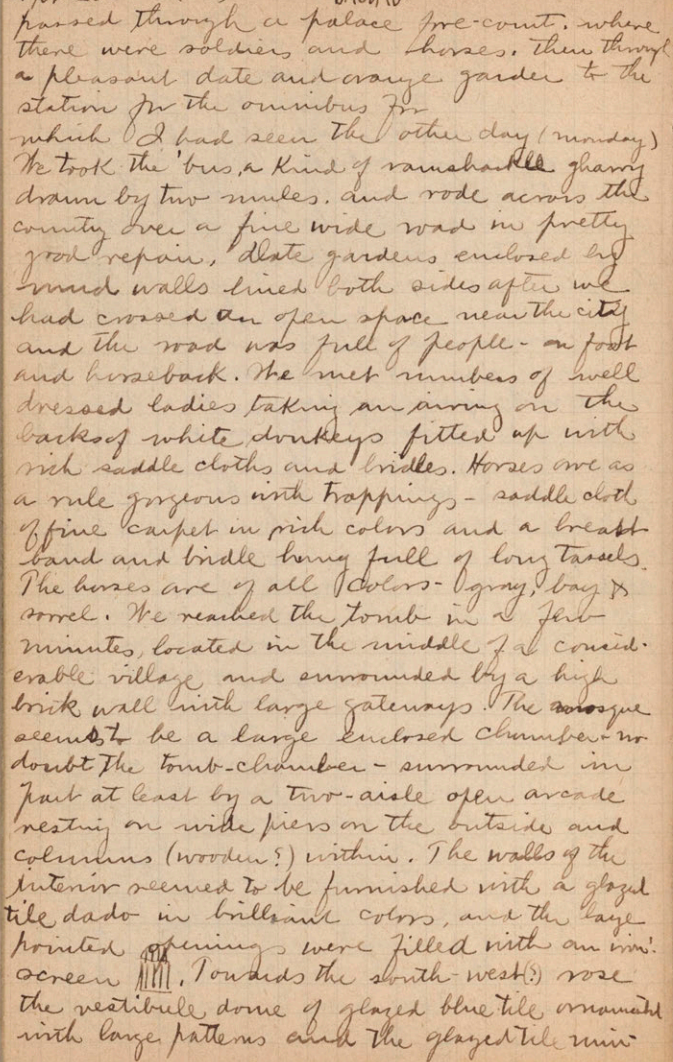 passed through a palace fore-court, where
there were soldiers and horses, then through
a pleasant date and orange garden to the
station for the omnibus for
which I had seen the other day (Monday)
We took the 'bus, a kind of ramshackle gharry
drawn by two mules, and rode across the
country over a fine wide road in pretty
good repair. Date gardens enclosed by
mud walls lined both sides after we
had crossed an open space near the city
and the road was full of people - on foot
and horseback. We met numbers of well
dressed ladies taking an airing on the
backs of white donkeys fitted up with
rich saddle cloths and bridles. Horses are as
a rule gorgeous with trappings - saddle cloth
of fine carpet in rich colors and a breast
band and bridle hung full of long tassels.
The horses are of all colors - gray, bay &
sorrel. We reached the tomb in a few
minutes, located in the middle of a consid-
erable village and surrounded by a high
brick wall with large gateways. The mosque
seems to be a large enclosed chamber - no
doubt the tomb-chamber - surrounded in
part at least by a two-aisle open arcade
resting on wide piers on the outside and
columns (wooden?) within. The walls of the
interior seemed to be furnished with a glazed
tile dado in brilliant colors, and the large
pointed openings were filled with an iron
screen . Towards the south-west(?) rose
the vestibule dome of glazed blue tile ornamented
with large patterns and the glazed tile min-